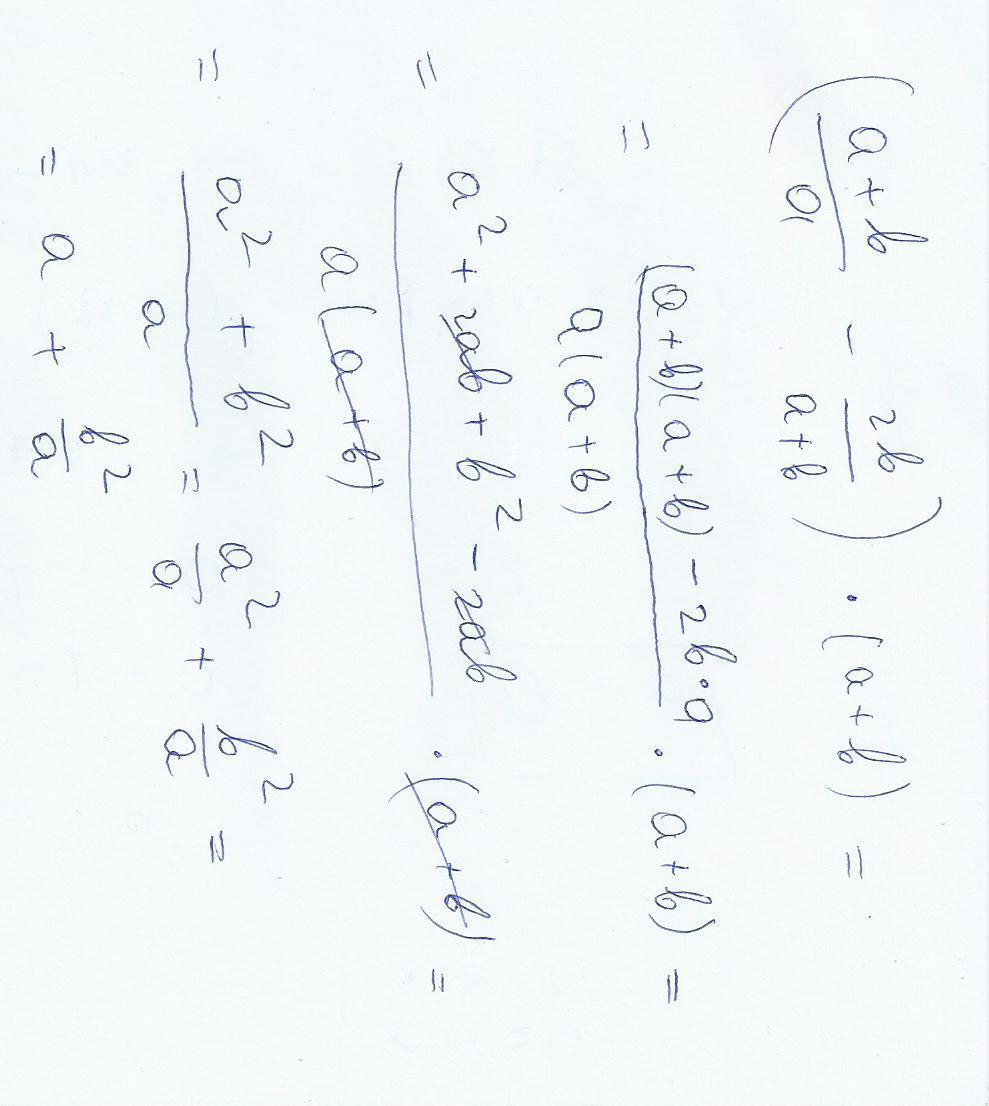 ( (a+b)/a - 2b/(a+b) ) · (a+b) =
= ((a+b)(a+b) - 2b·a)/(a(a+b)) · (a+b) =
= (a² + 2ab + b² - 2ab)/(a(a+b)) · (a+b) =
= (a² + b²)/a = a²/a + b²/a =
= a + b²/a